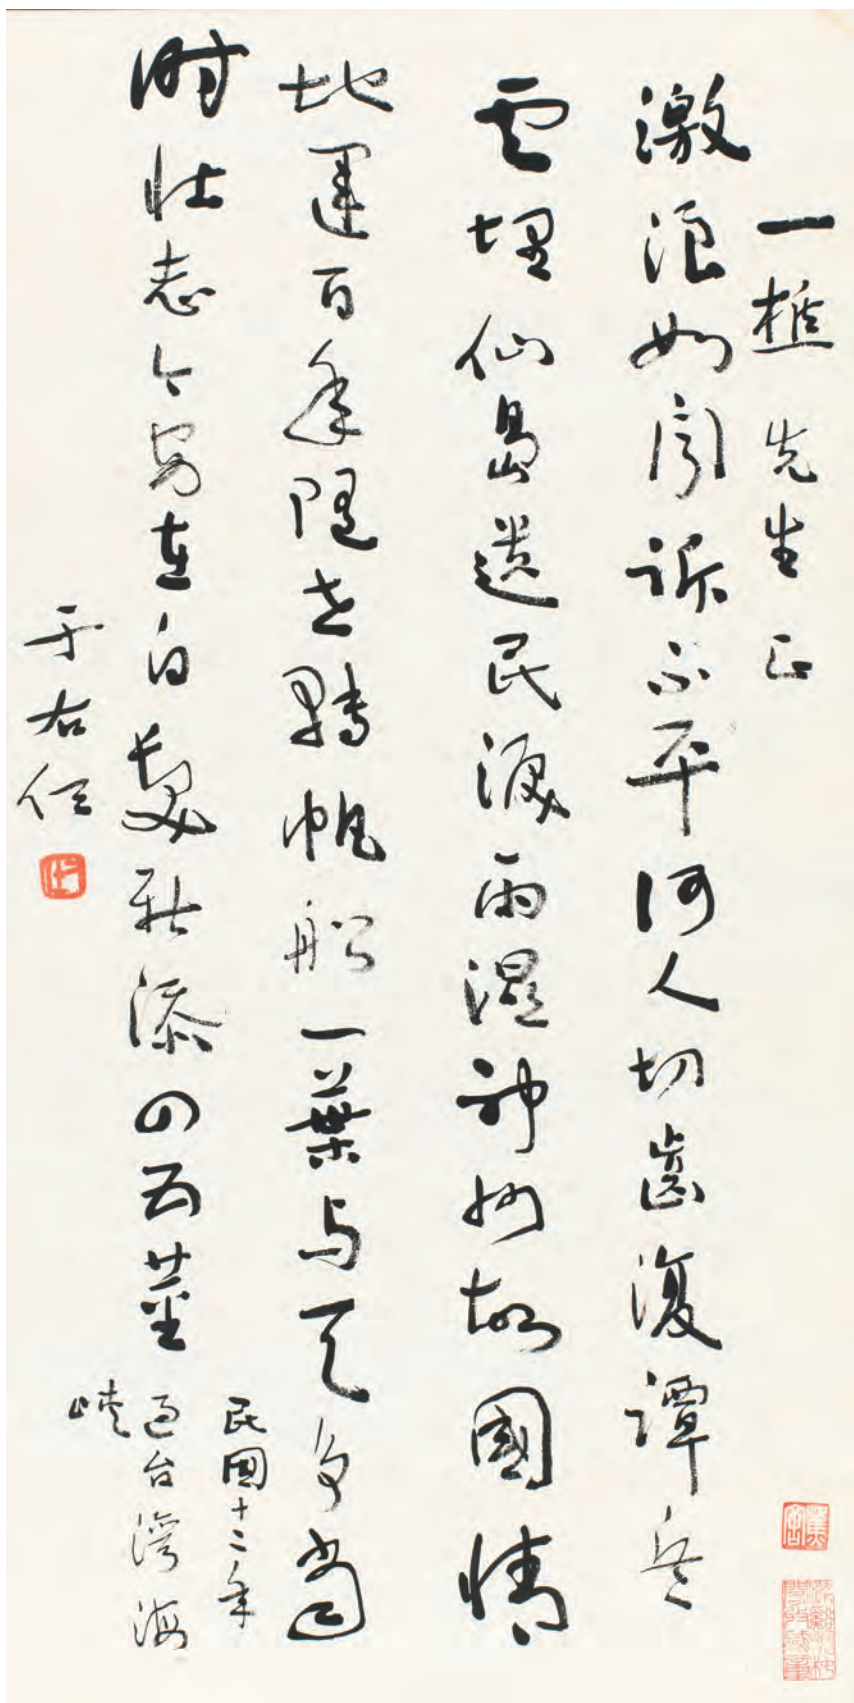 一樵 先生 正
激浪如聞訴不平何人切齒復譚兵
雲埋仙島遺民淚雨濕神州故國情
地運百年隨世轉帆船一葉与天爭當
時壯志今安在白髮新添四五莖
民國十二年
過台灣海
峽
于右任